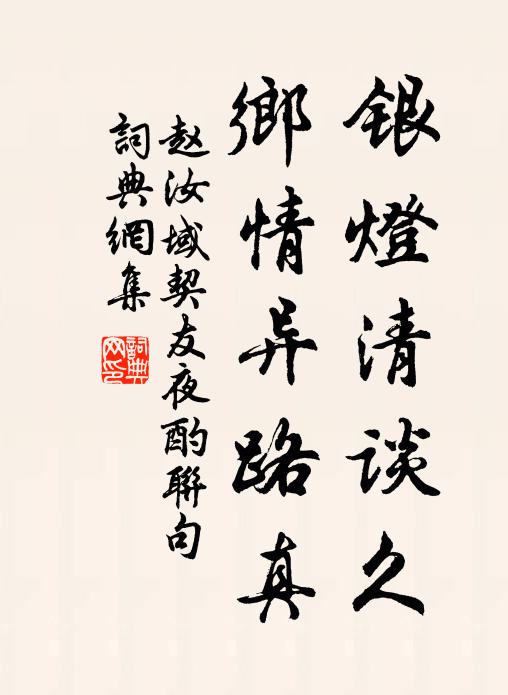 銀燈清谈久
鄉情异路真
赵汝域契友夜酌聯句
詞典網集
詞典网印